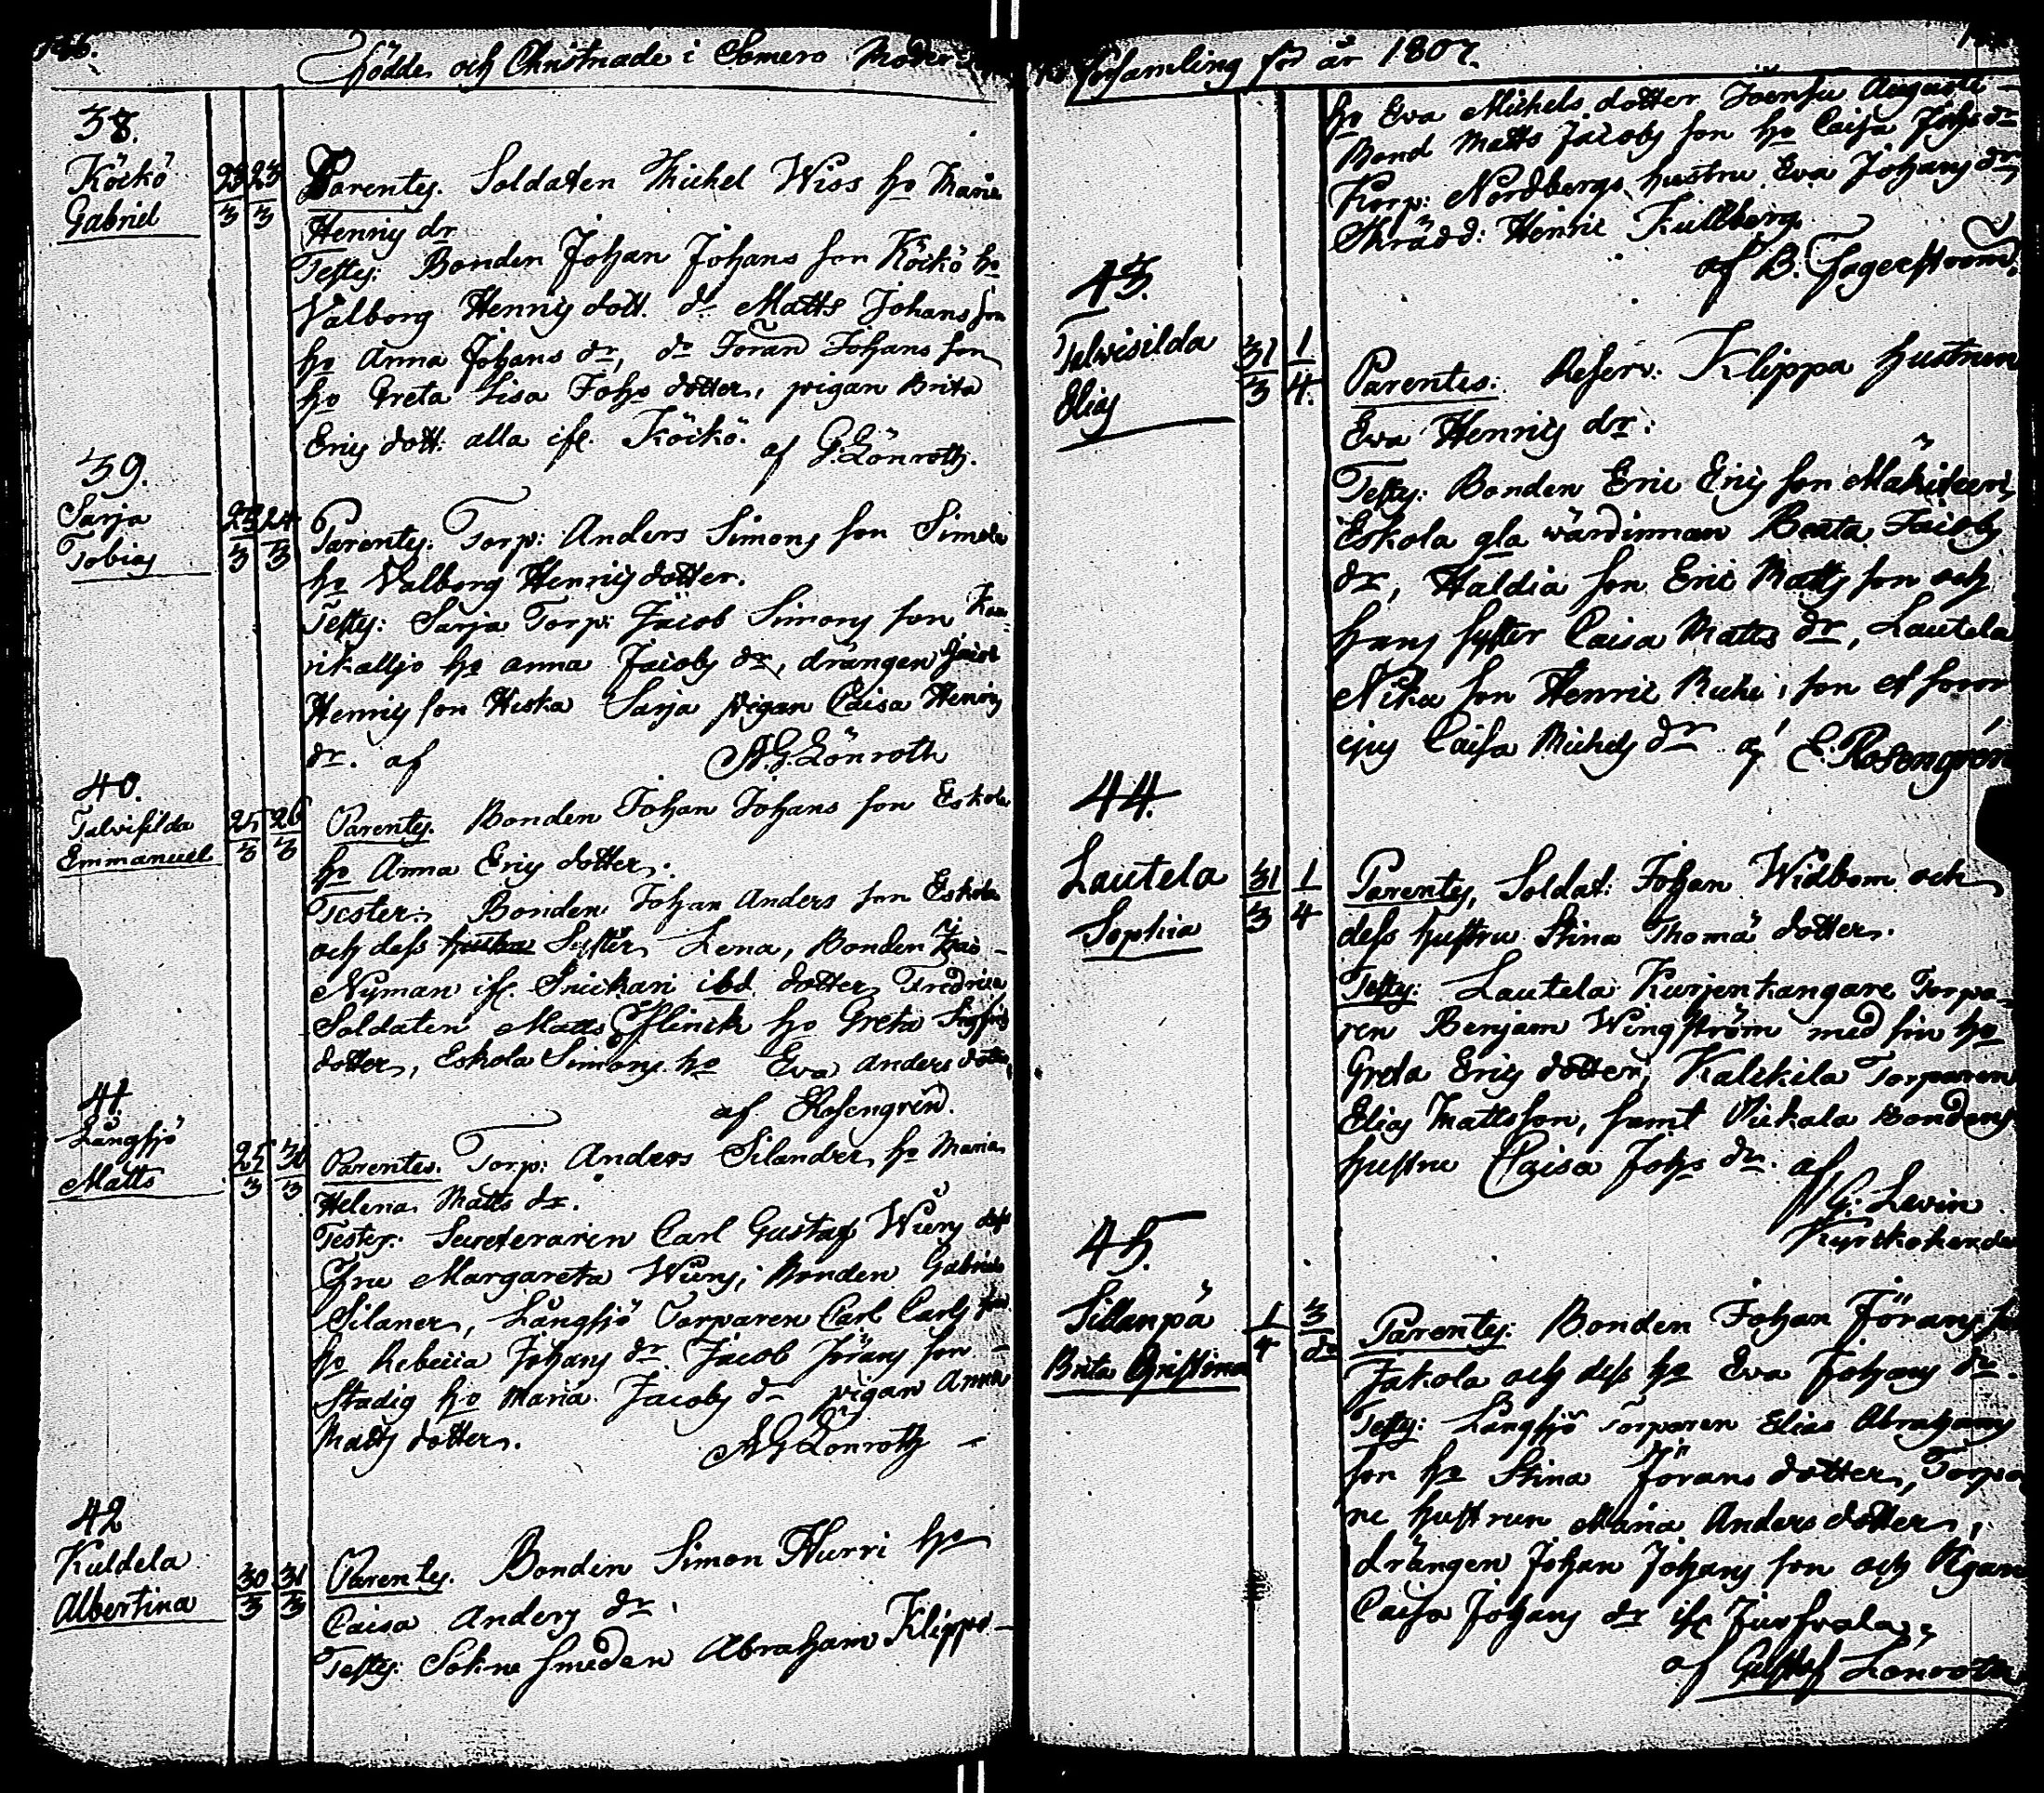 Födde och Christnade i Somero Moder
38.
Köikö
Gabriel
23/3 23/3
Parentes. Soldaten Michel Wiss ho Maria
Henrics dr
Testes: Bonden Johan Johans son Köikö ho
Valborg Henrics dott. do Matts Johans son
ho Anna Johans dr, do Jöran Johans son
ho Greta Lisa Johs dotter, pigan Brita
Erics dott. alla ifr. Köikö. af G. Lönroth.
39.
Sarja
Tobias
23/3 24/3
Parentes. Torp: Anders Simons son Simola
ho Valborg Henrics dotter.
Testes: Sarja Torp: Jacob Simons son
ho Anna Jacobs dr, drängen
Henrics son Hiska Sarja pigan Caisa Henrics
dr. af A.G. Lönroth
40.
Talvisilda
Emmanuel
25/3 26/3
Parentes. Bonden Johan Johans son Eskola
ho Anna Erics dotter.
Tester: Bonden Johan Anders son Eskola
och dess hustru Syster Lena, Bonden
Nyman ifr. Snickari ibd dotter Fredrica
Soldaten Matts Flinck ho Greta Sigfrids
dotter, Eskola Simons ho Eva Anders dotter,
af Rosengren.
41.
Långsjö
Matts
25/3 30/3
Parentes. Torp: Anders Silander ho Maria
Helena Matts dr.
Tester: Secreteraren Carl Gustaf Wurz dess
Fru Margareta Wurz, Bonden Gabriel
Silaner, Långsjö Torparen Carl Carls son
ho Rebecca Johans dr Jacob Jörans son -
Stadig ho Maria Jacobs dr pigan Anna
Matts dotter. A.G. Lönroth -
42
Kuldela
Albertina
30/3 31/3
Parentes. Bonden Simon Hurri ho
Caisa Anders dr.
Testes: Sokne smeden Abraham Klippo -
Församling för år 1807.
ho Eva Michels dotter Joensu Augusti -
Bond Matts Jacobs son ho Caisa Johs dr
Korp: Nordbergs hustru Eva Johans dr
Skrädd: Henric Kullberg.
af B. Fagerström.
43.
Talvisilda
Elias
31/3 1/4.
Parentes: Reserv: Klippa hustrun
Eva Henrics dr:
Testes: Bonden Eric Erics son Mäkiteeri,
Eskola gla wärdinnan Beata Jacobs
dr, Haldia son Eric Matts son och
hans syster Caisa Matts dr, Lautela
Niku son Henric Michs, son et soror
ejus Caisa Michels dr af E. Rosengren
44.
Lautela
Sophia
31/3 1/4
Parentes, Soldat: Johan Widbom och
dess hustru Stina Thomä dotter.
Testes: Lautela Kurjenkangare Torpa-
ren Benjam Wingström med sin ho
Greta Erics dotter, Kalikila Torparen
Elias Mattsson, samt Viskala Bondens
hustru Caisa Johs dr. af
G. Levin
Kyrkoherde
45.
Sillanpä
Brita Christina
1/4 3/do
Parentes: Bonden Johan Jörans son
Jakola och dess ho Eva Johans dr.
Testes: Långsjö Torparen Elias Abrahams
son ho Stina Jörans dotter, Torpa
re hustrun Maria Anders dotter,
drängen Johan Johans son och Pigan
Caisa Johans dr ifr
af Gustaf Lönroth